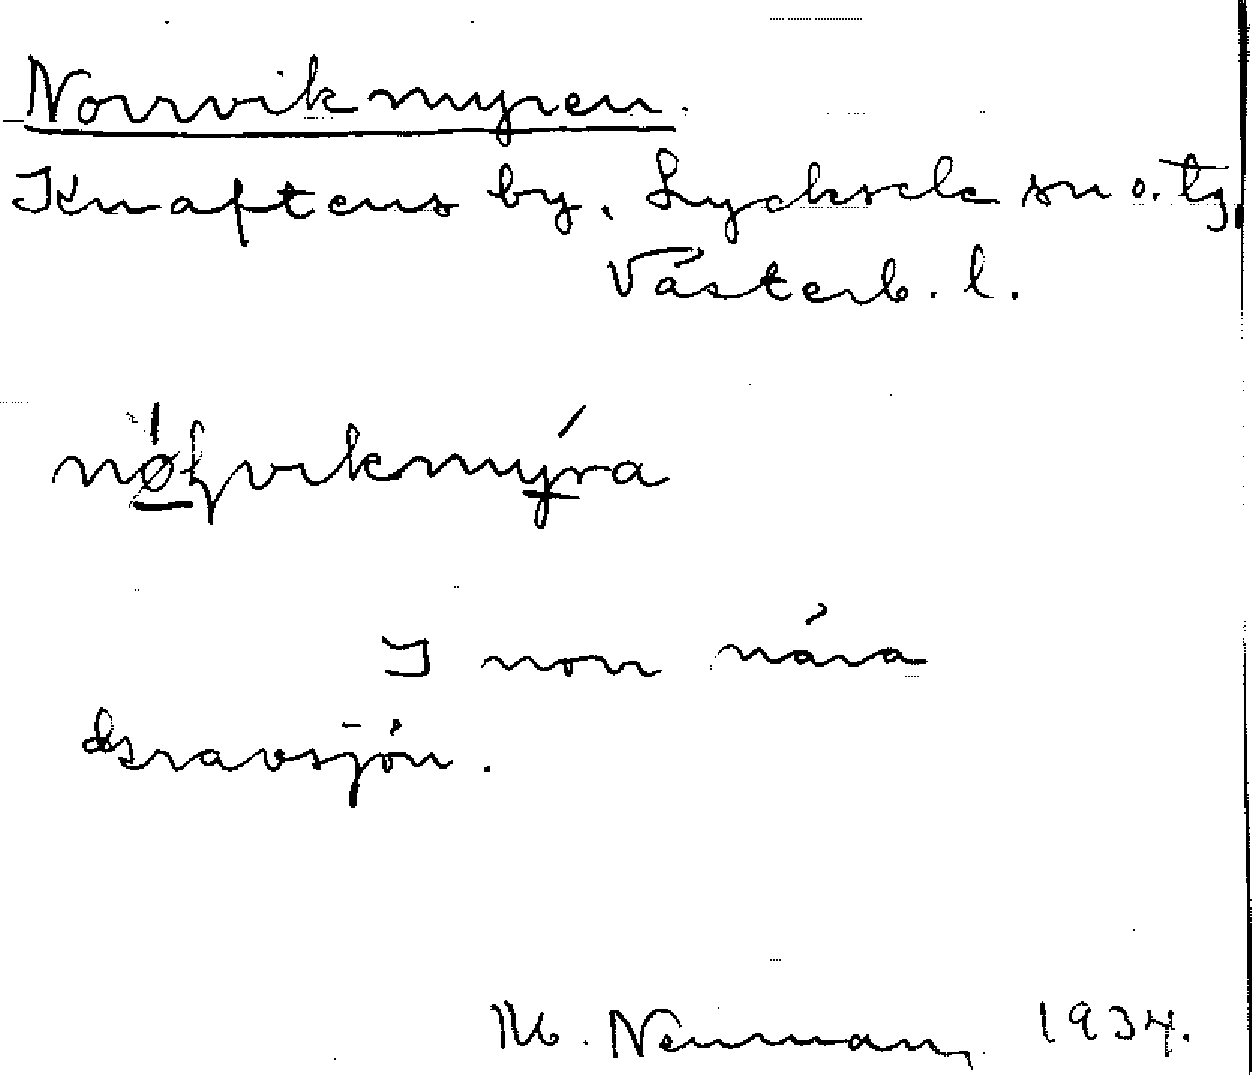 Norrvikmyren.
Knaftens by, Lycksele sn o. tg,
Västerb. l.
I norr nära
Gravsjön.
M. Neuman, 1934.